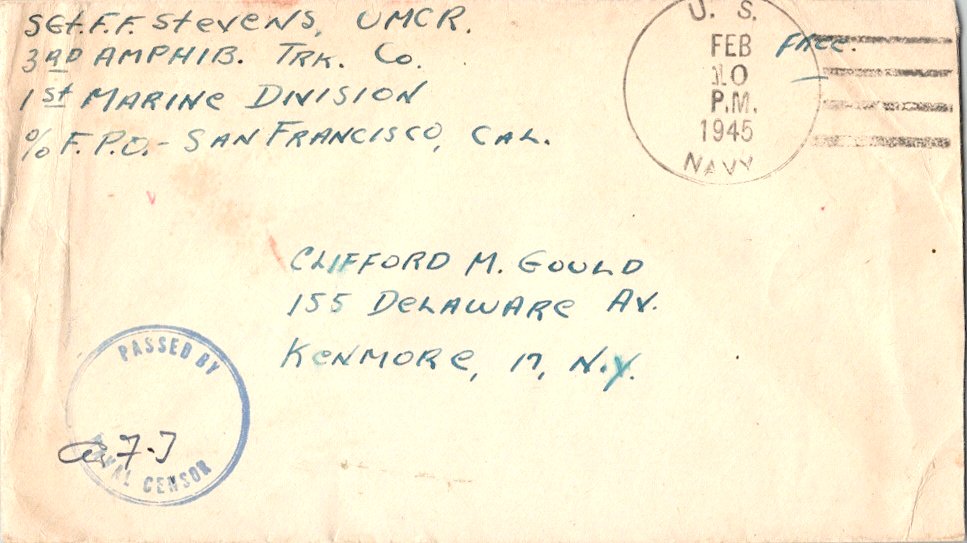 Sgt. F. F. Stevens, UMCR.
3RD AMPHIB. TRK. Co.
1st MARINE DIVISION
c/o F.P.O. - SAN FRANCISCO, CAL.
U. S.
FEB
10
P.M.
1945
NAVY
Free.
CLIFFORD M. GOULD
155 DELAWARE AV.
KENMORE, 17, N.Y.
PASSED BY
NAVAL CENSOR